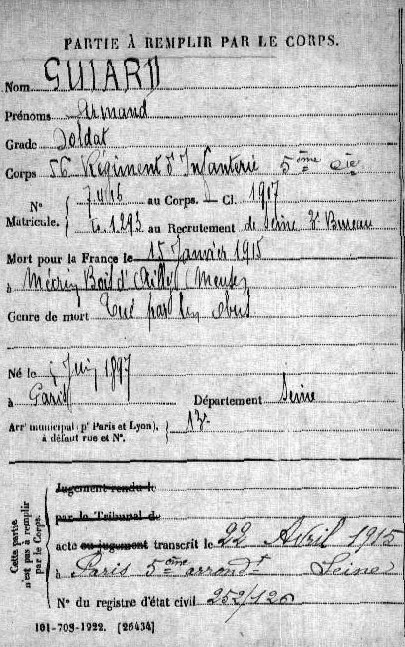 PARTIE À REMPLIR PAR LE CORPS.
Nom GUIARD
Prénoms Armand
Grade Soldat
Corps 56 Régiment d'Infanterie 5ème Cie
N° Matricule. au Corps. Cl. 1917
1293 au Recrutement de Seine Bureau
Mort pour la France le 15 Janvier 1915
à Mécrin Bois d'Ailly (Meuse)
Genre de mort Tué par un obus
Né le Juin 1897
à Paris Département Seine
Arrt municipal (pr Paris et Lyon), à défaut rue et N°.
Cette partie n'est pas à remplir par le Corps.
Jugement rendu le
par le Tribunal de
acte ou jugement transcrit le 22 Avril 1915
à Paris 5ème arrondt Seine
N° du registre d'état civil 252/126
101-708-1922. [26434]